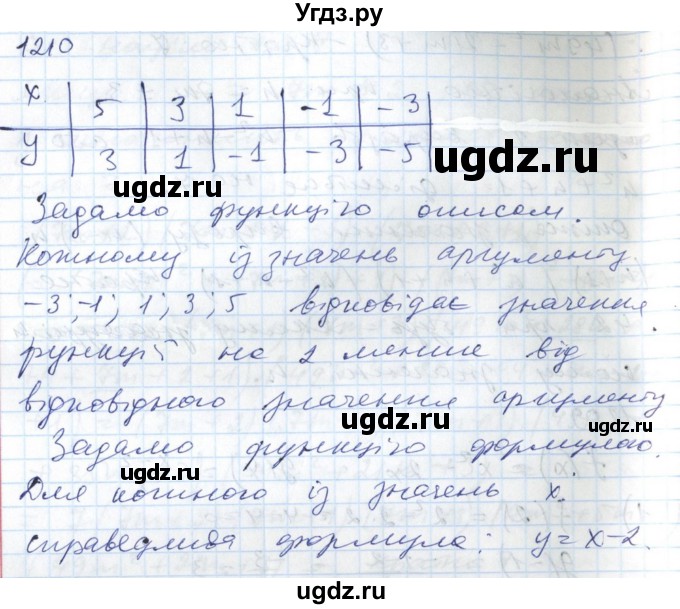 Угдз.ру
1210
x 5 3 1 -1 -3
y 3 1 -1 -3 -5
Задамо функцію описом.
Кожному із значень аргументу
-3; -1; 1; 3; 5 відповідає значення
функції на 2 менше від
відповідного значення аргументу
Задамо функцію формулою.
Для кожного із значень x
справедлива формула: y = x - 2.
ugdz.ru
ugdz.ru
ugdz.ru
ugdz.ru
ugdz.ru
ugdz.ru
ugdz.ru
ugdz.ru